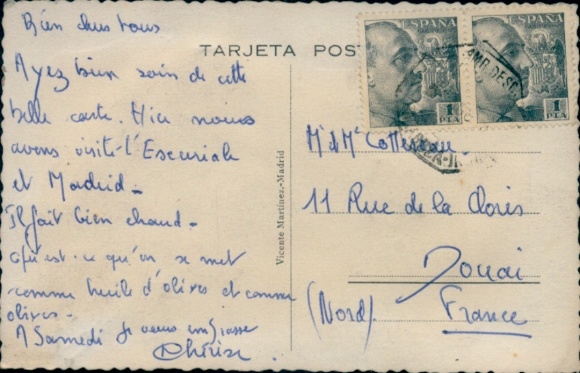 Bien chers tous
Ayez bien soin de cette
belle carte. Hier nous
avons visité l'Escuriale
et Madrid -
Il fait bien chaud -
qu'est-ce qu'on se met
comme huile d'olives et comme
olives -
A Samedi Je vous embrasse
TARJETA POST
ESPAÑA
1
PTA
ESPAÑA
1
PTA
AMB DESC
Vicente Martínez.-Madrid
Mr et Me
11 Rue de la Cloris
Douai
(Nord). France